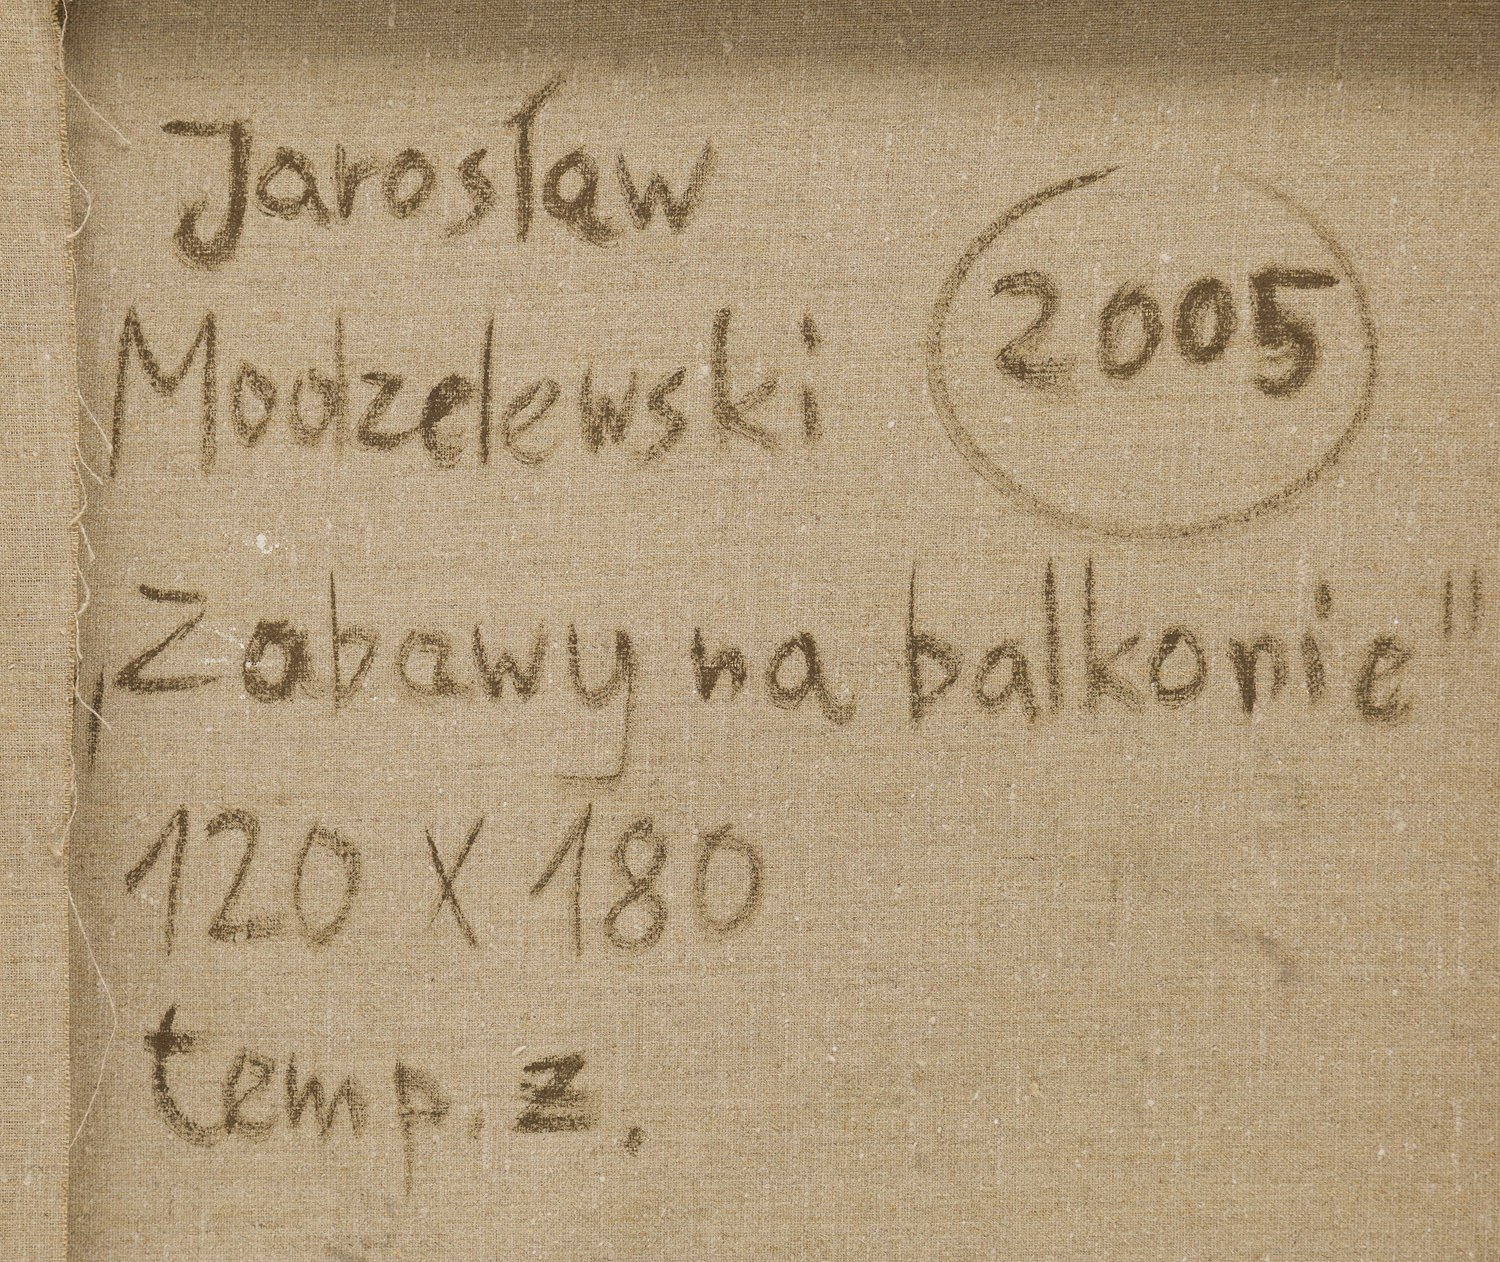 Jarosław
Modzelewski
2005
„Zabawy na balkonie"
120 x 180
temp. z.